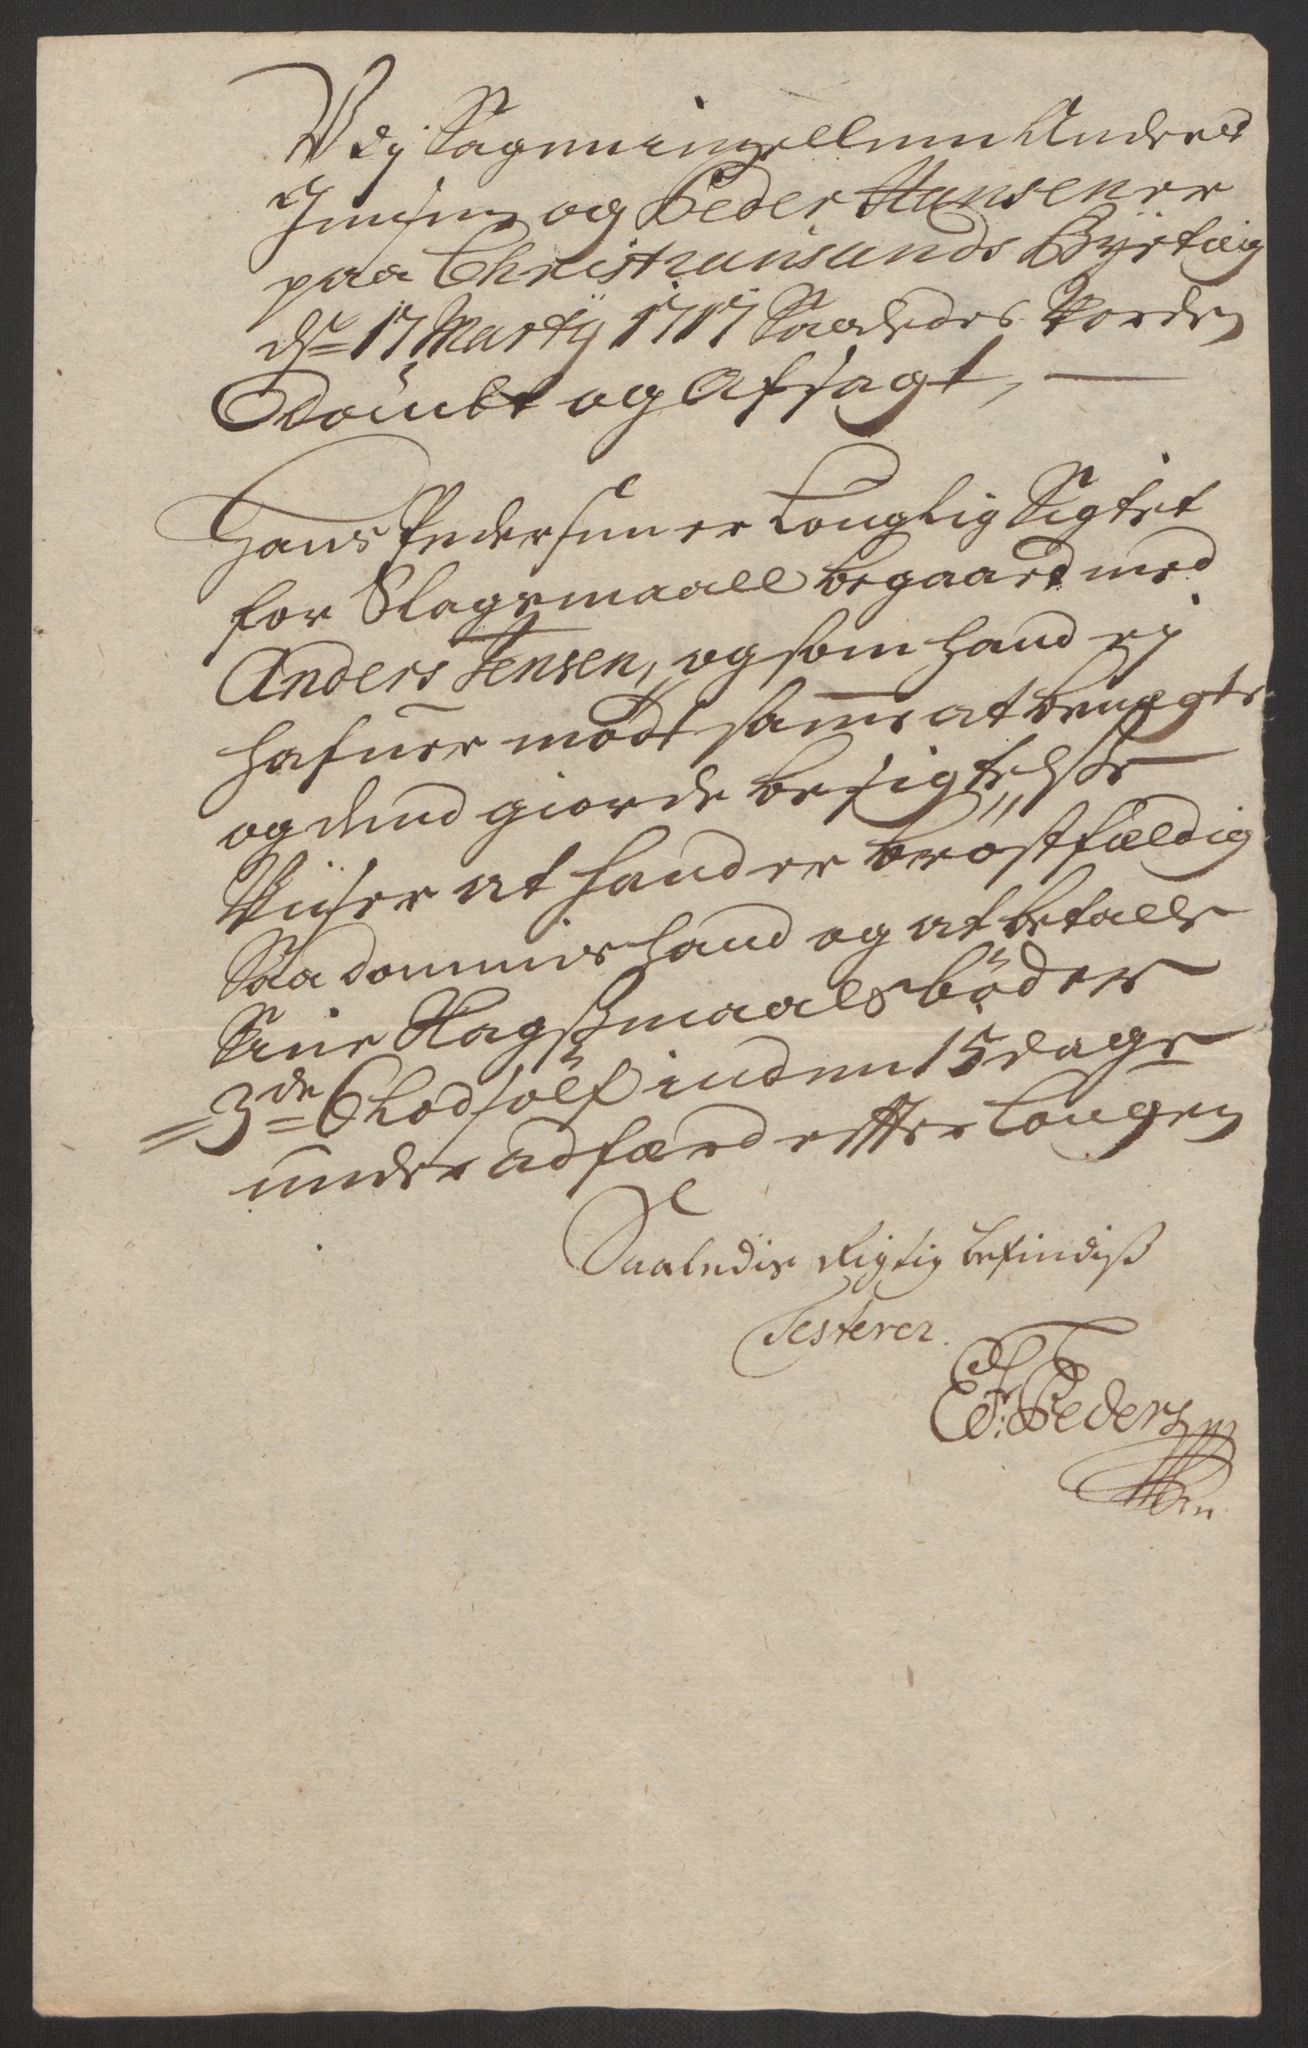 Udj Sagen imellem Anders
Jensen og Peder Hansen er
paa Christiansands Bÿeting
dn 17 Martÿ 1717 Saaledes Vorden
Dömbt og Afsagt,
Hans Pedersen er Louglig Sigtet
for Slagsmaall begaaed med
Anders Jensen, og som hand ej
hafuer mödt samme at benegte
og dend giorde besigtelsse
Viiser at hand er bröstfældig
Saa dömmes hand og at betalle
Sine Slagsmaals böder
3de 6 Lod sölf inden 15 dage
under adfærd effter Lougen
Saaledis Rigtig befindiß
Testerer
Pedersen